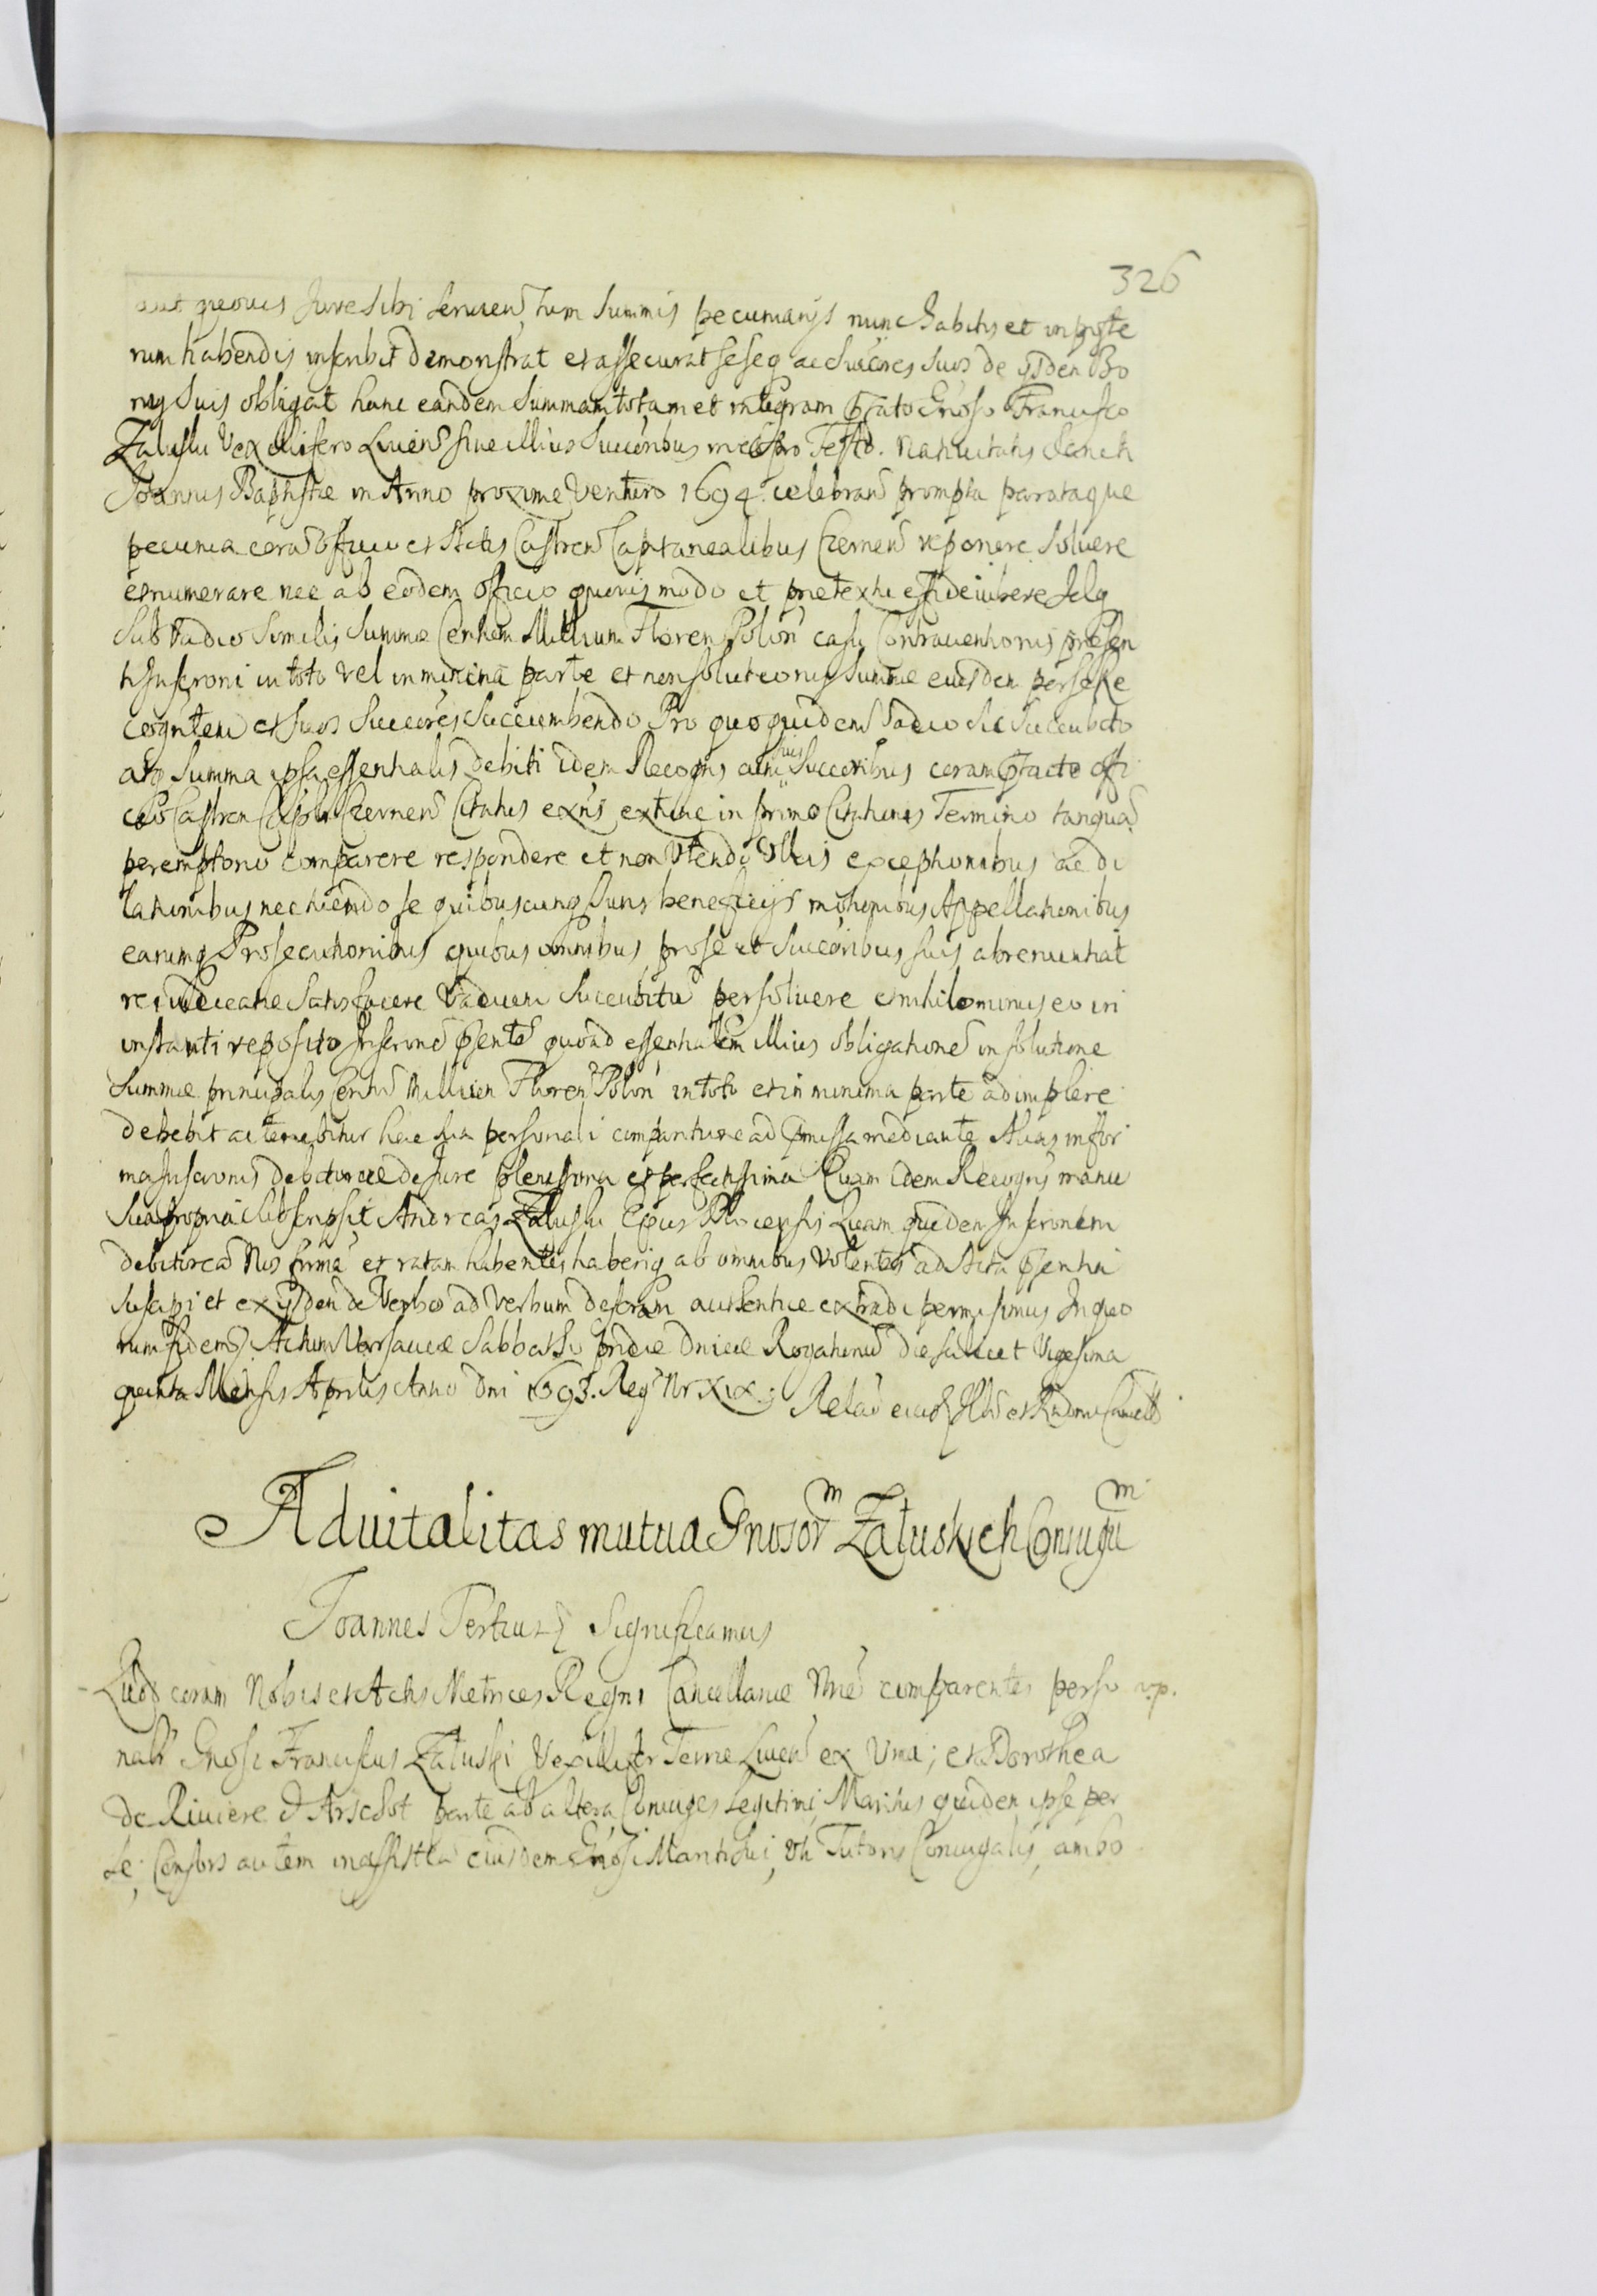 326
quovis Jure sibi servien, tum summis pecuniarijs nunc habitis et in poste
rum habendis inscribit demonstrat et assecurat seseq ac Succores suos de ijsdem Bo
nis suis obligat hanc eandem summam totam et integram Gnoso Francisco
Zaluski Vexillifero Livien sive illius Succoribus pro Festo Nativitatis Sancti
Joannis Baptistæ in Anno proxime Venturo 1694 celebran prompta parataque
pecunia coram officio et Actis Castren Capitanealibus Czernen reponere solvere
et numerare nec ab eodem officio quovis modo et prætextu
Sub Vadio simili summæ Centum Millium Floren Polon casu Contraventionis præsen
ti Inscroni in toto vel in minima parte et non solutionis summæ eiusdem per se Re
cogntem et suos Succores succumbendo Pro quo quidem Vadio sic succubito
atq summa ipsa essentialis debiti idem Recogns cum suis Succoribus coram offi
cio Castren Czernen Citatus ex tunc in primo Citationis Termino tanquam
peremptorio comparere respondere et non Utendo Ullis exceptionibus ac di
lationibus nec iuvando se quibuscunq Juris beneficijs motionibus Appellationibus
earumq Prosecutionibus quibus omnibus pro se et Succoribus suis abrenuntiat
satisfacere Vadium succubitum persolvere et nihilominus eo in
instanti reposito Inscrone psente quoad essentialem illius obligatione in solutione
summæ principalis Centu Millium Floren Polon in toto et in minima parte adimplere
debebit ac tenebitur hac sua personali mediante Alias infor
ma Inscronis debitoriæ de Jure plenissima et perfectissima Quam idem Recogns manu
sua propria subscripsit Andreas Zaluski Epus Plocensis Quam quidem Inscronem
debitoream Nos firma et ratam habentes haberiq ab omnibus Volentes ad Acta psentia
suscipi et ex ijsdem de Verbo ad Verbum authentice extradi permisimus In quo
rum fidem. Actum Varsaviæ Sabbatho pridie Dnicæ Rogationu die scilicet Vigesima
quinta Mensis Aprilis Anno Dni 1693. Reg Nr XIX.
Advitalitas mutua Gnosorm Załuskich Coniugum
Joannes Tertius Significamus
Quod coram Nobis et Actis Metrices Regni Cancellariæ Nræ comparentes perso
nalr Gnosi Franciscus Załuski Vexillifer Terræ Livien ex Una; et Dorothea
de Riviere d'Arschot parte ab altera Coniuges Legitimi, Maritus quidem ipse per
se, Consors autem in assistta eiusdem Gnosi Mariti sui, Uti Tutoris Coniugalis, ambo